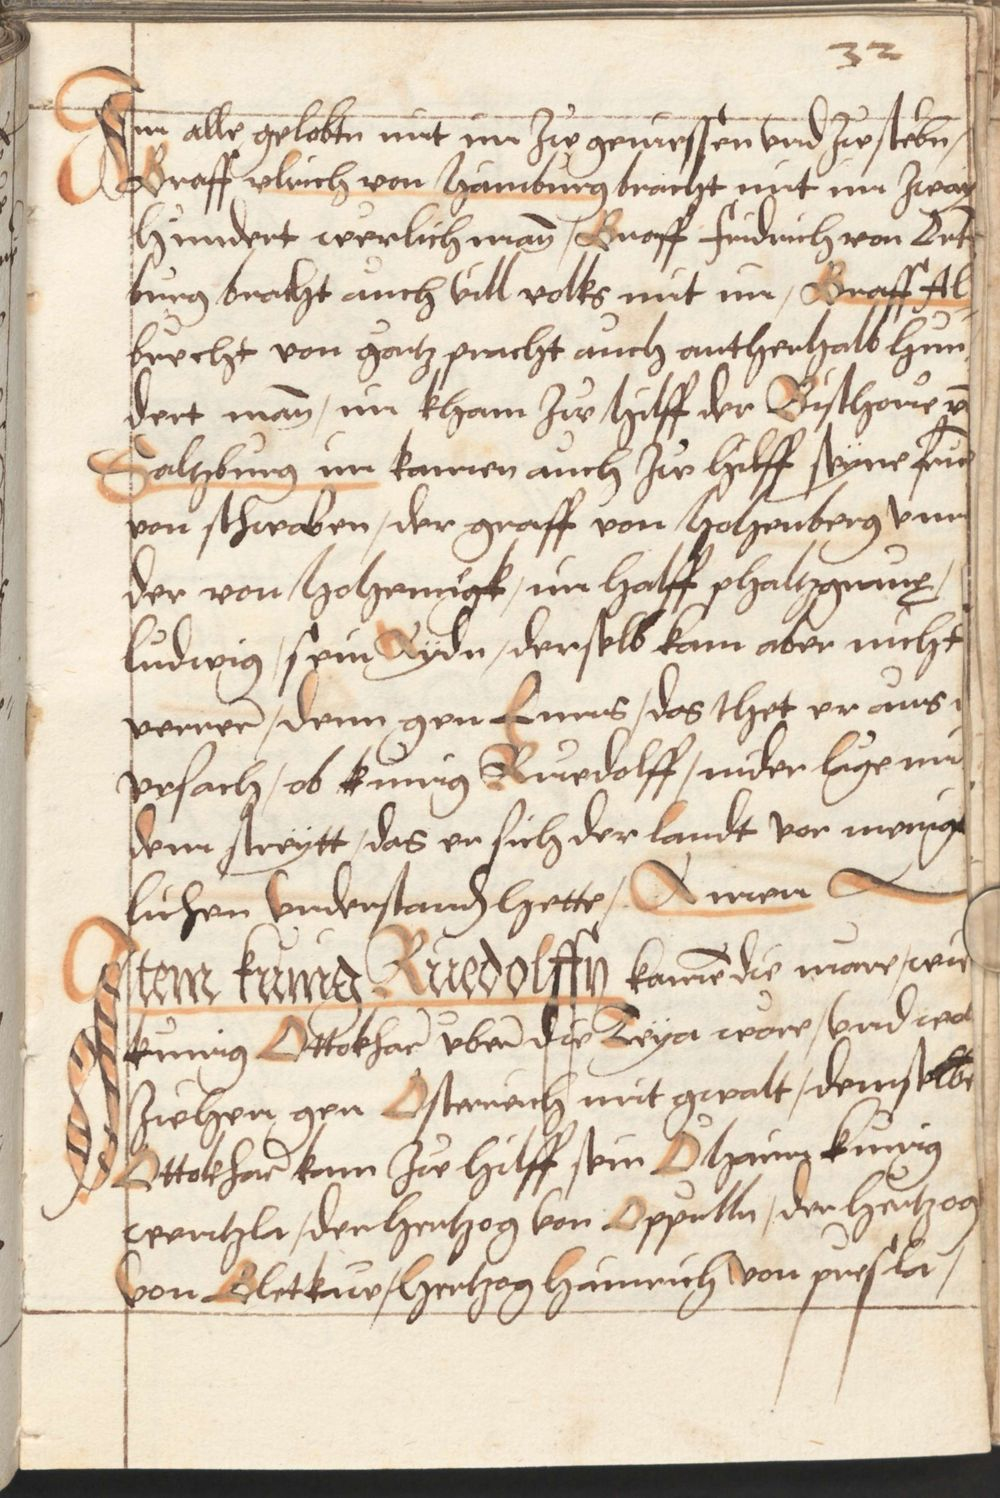 32
Im alle gelobtn mit im zw geniessen vnd zw sterbn /
Graff vlrich von Hainburg bracht mit im zway
hundert werlich man / Graff fridrich von Ort
burg bracht auch vill volks mit im / Graff Al
brecht von gortz pracht auch antherhalb hun
dert man / im kham zw hilff der Bisthoue v
Saltzburg im kamen auch zw hilff seyne
von schwaben / der graff von Hohenberg vnn
der von hohennigk / im halff phaltzgraue /
ludwig / sein Aydn / derselb kam aber nicht
verrer / denn gen Enns / das thet er aus
vrsach / ob kunig Ruedolff / nider läge mi
dem streytt / das er sich der landt vor menig
lichen vnderstandn hette / Amen
Item kunig Ruedolffn kamen die mare / wie
kunig Ottokhar vber die Teya ware / vnd wol
ziehen gen Osterreich mit gwalt / demselbn
Ottokhar kam zw hilff sein Ohaim kunig
wentzla / der hertzog von Oppulln / der hertzog
von Gletkaw / hertzog hainrich von presla /